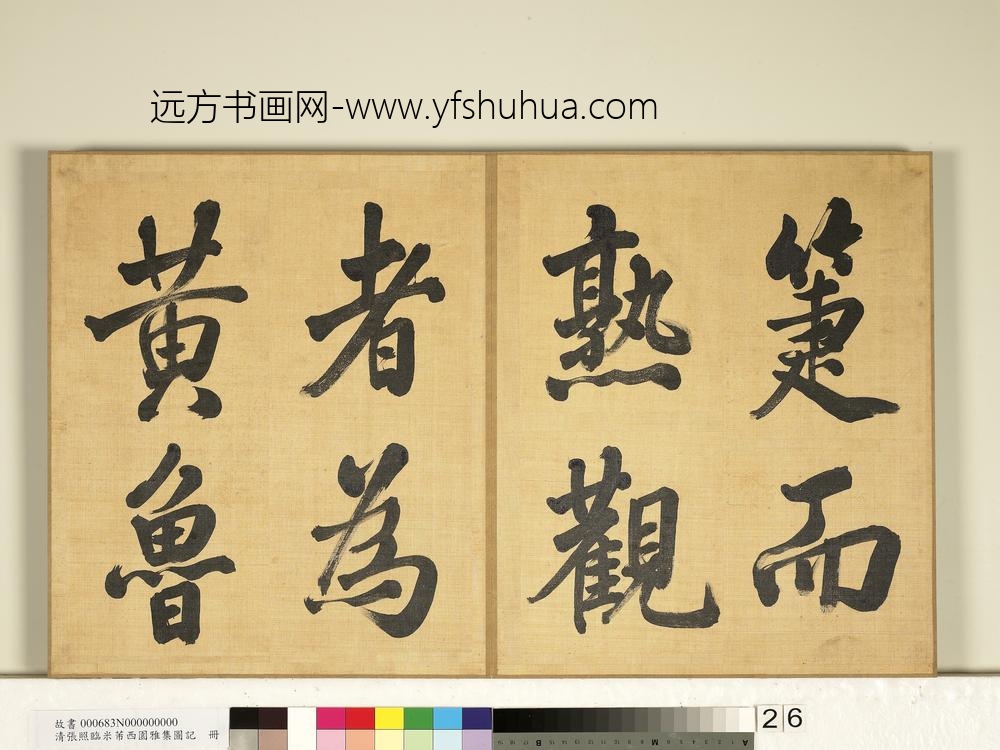 远方书画网-www.yfshuhua.com
箑而
熟觀
者為
黃魯
故書 000683N000000000
清張照臨米芾西園雅集圖記 冊
26